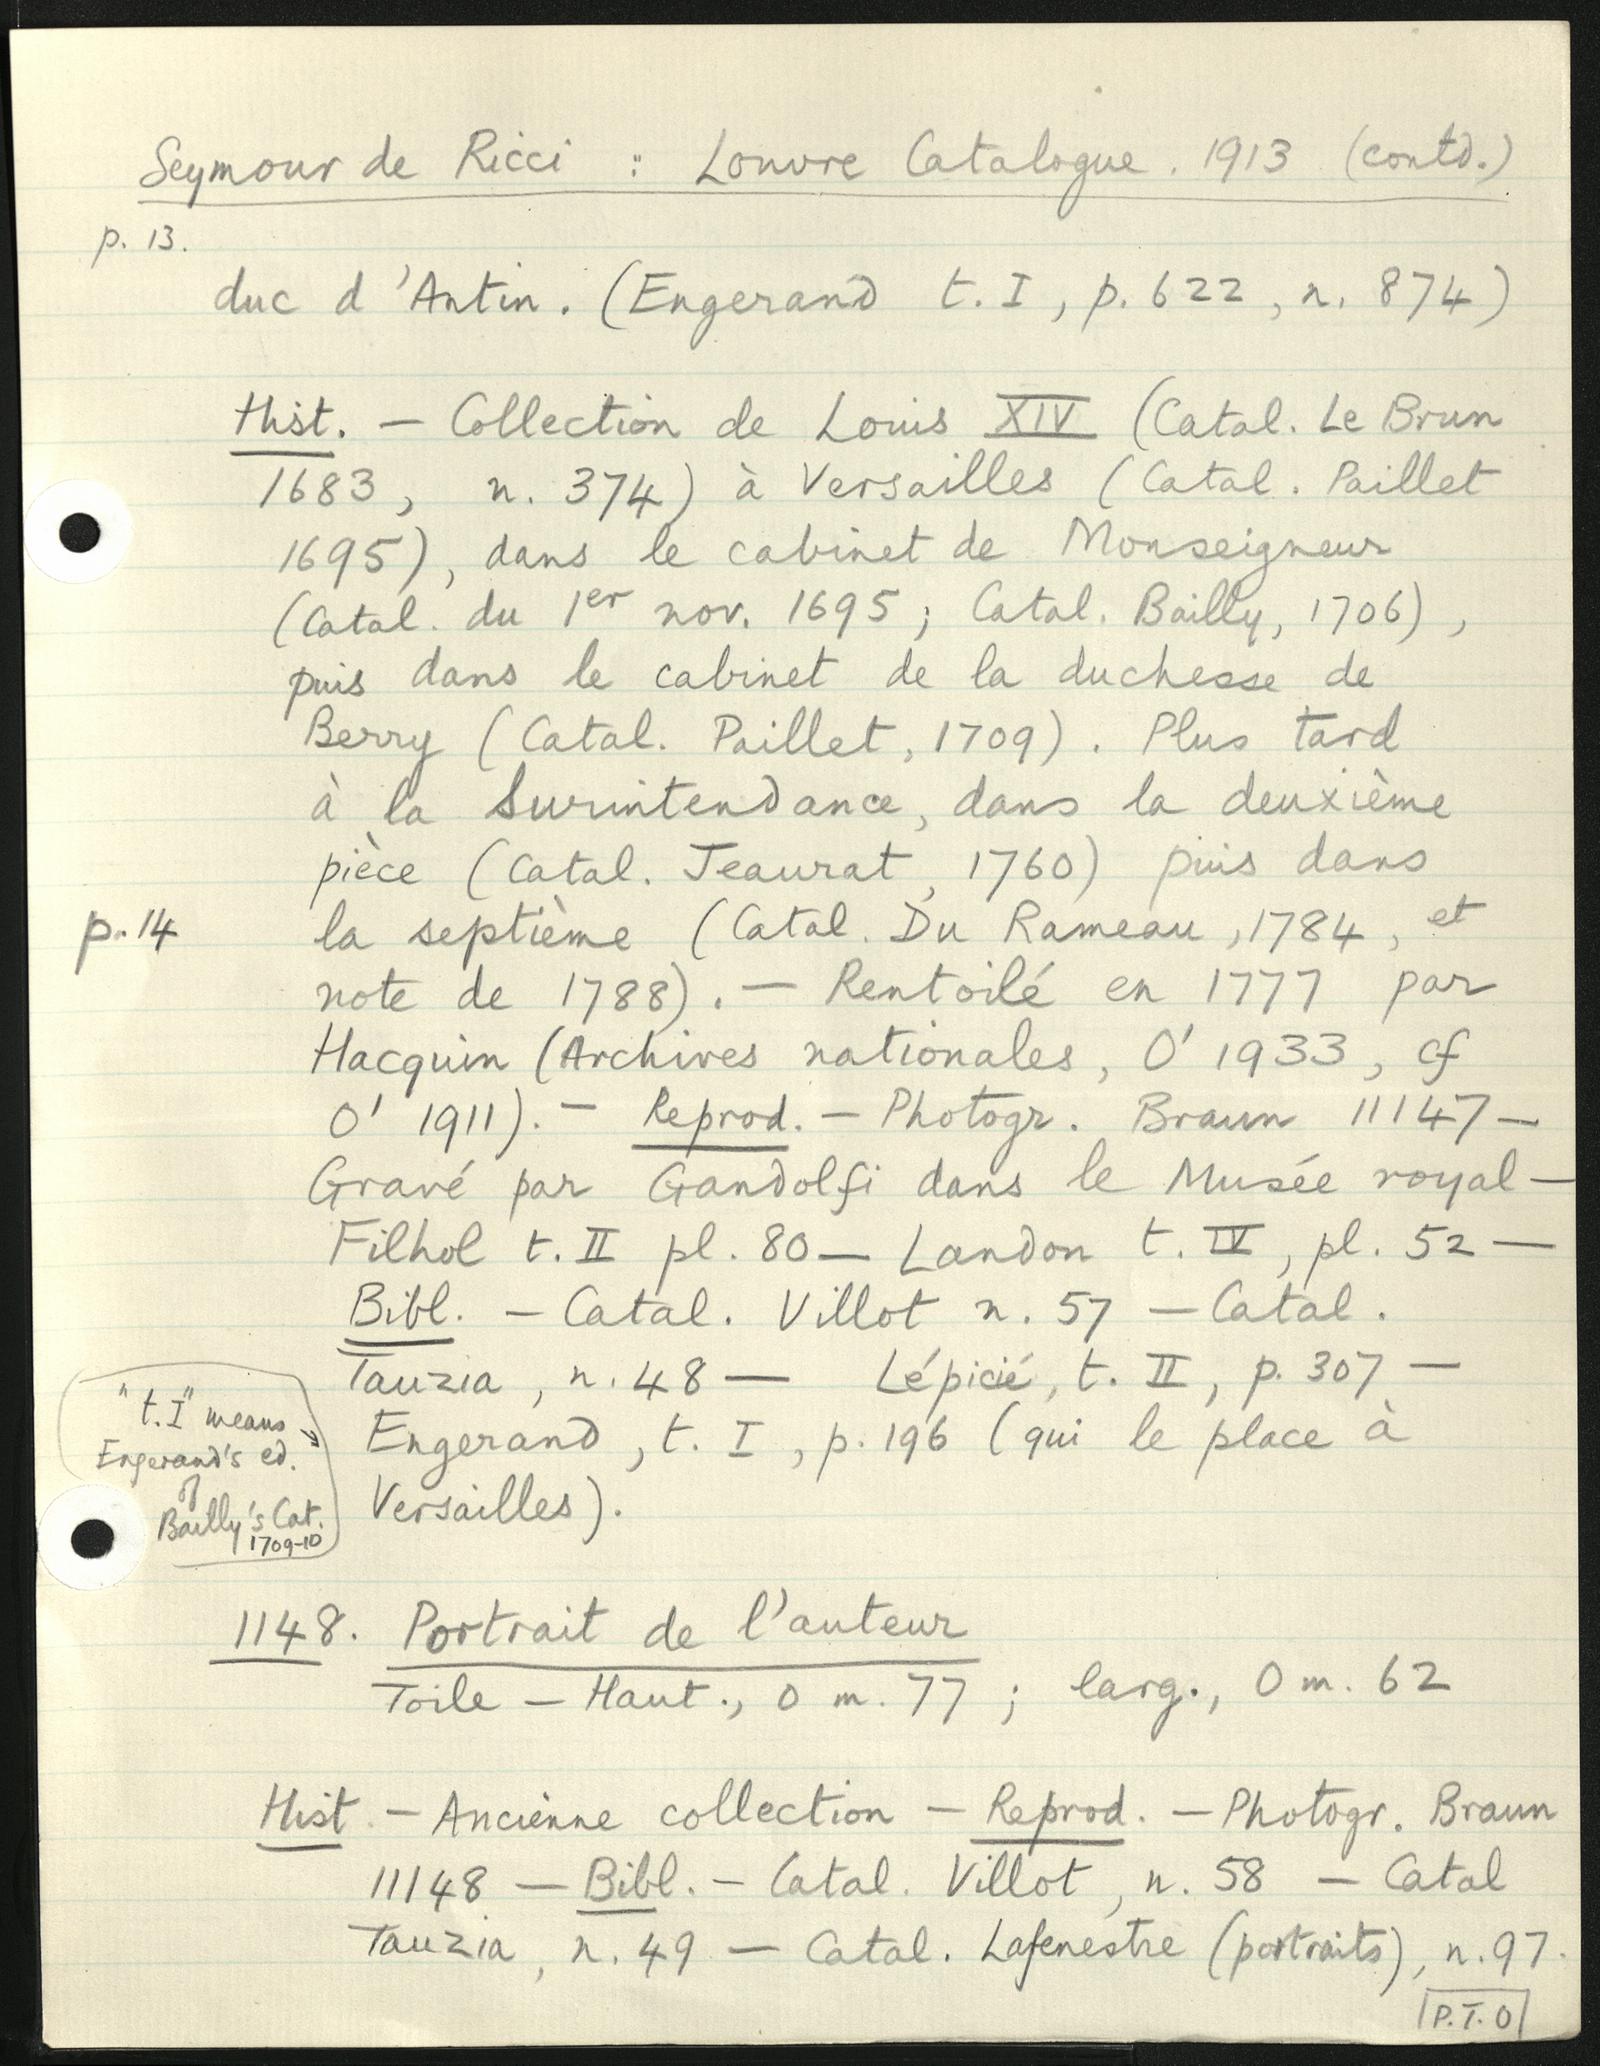 Seymour de Ricci : Louvre Catalogue. 1913 (contd.)
p. 13.
duc d'Antin. (Engerand t. I, p. 622, n. 874)
Hist. — Collection de Louis XIV (Catal. Le Brun
1683, n. 374) à Versailles (Catal. Paillet
1695), dans le cabinet de Monseigneur
(Catal. du 1er nov. 1695; Catal. Bailly, 1706),
puis dans le cabinet de la duchesse de
Berry (Catal. Paillet, 1709). Plus tard
à la Surintendance, dans la deuxième
pièce (Catal. Jeaurat, 1760) puis dans
p. 14 la septième (Catal. Du Rameau, 1784, et
note de 1788). — Rentoilé en 1777 par
Hacquin (Archives nationales, O' 1933, cf
O' 1911). — Reprod. — Photogr. Braun 11147 —
Gravé par Gandolfi dans le Musée royal —
Filhol t. II pl. 80 — Landon t. IV, pl. 52 —
Bibl. — Catal. Villot n. 57 — Catal.
Tauzia, n. 48 — Lépicié, t. II, p. 307 —
Engerand, t. I, p. 196 (qui le place à
Versailles).
"t. I" means
Engerand's ed.
of
Bailly's Cat.
1709-10
1148. Portrait de l'auteur
Toile — Haut., 0 m. 77; larg., 0 m. 62
Hist. — Ancienne collection — Reprod. — Photogr. Braun
11148 — Bibl. — Catal. Villot, n. 58 — Catal
Tauzia, n. 49 — Catal. Lafenestre (portraits), n. 97.
P.T.O